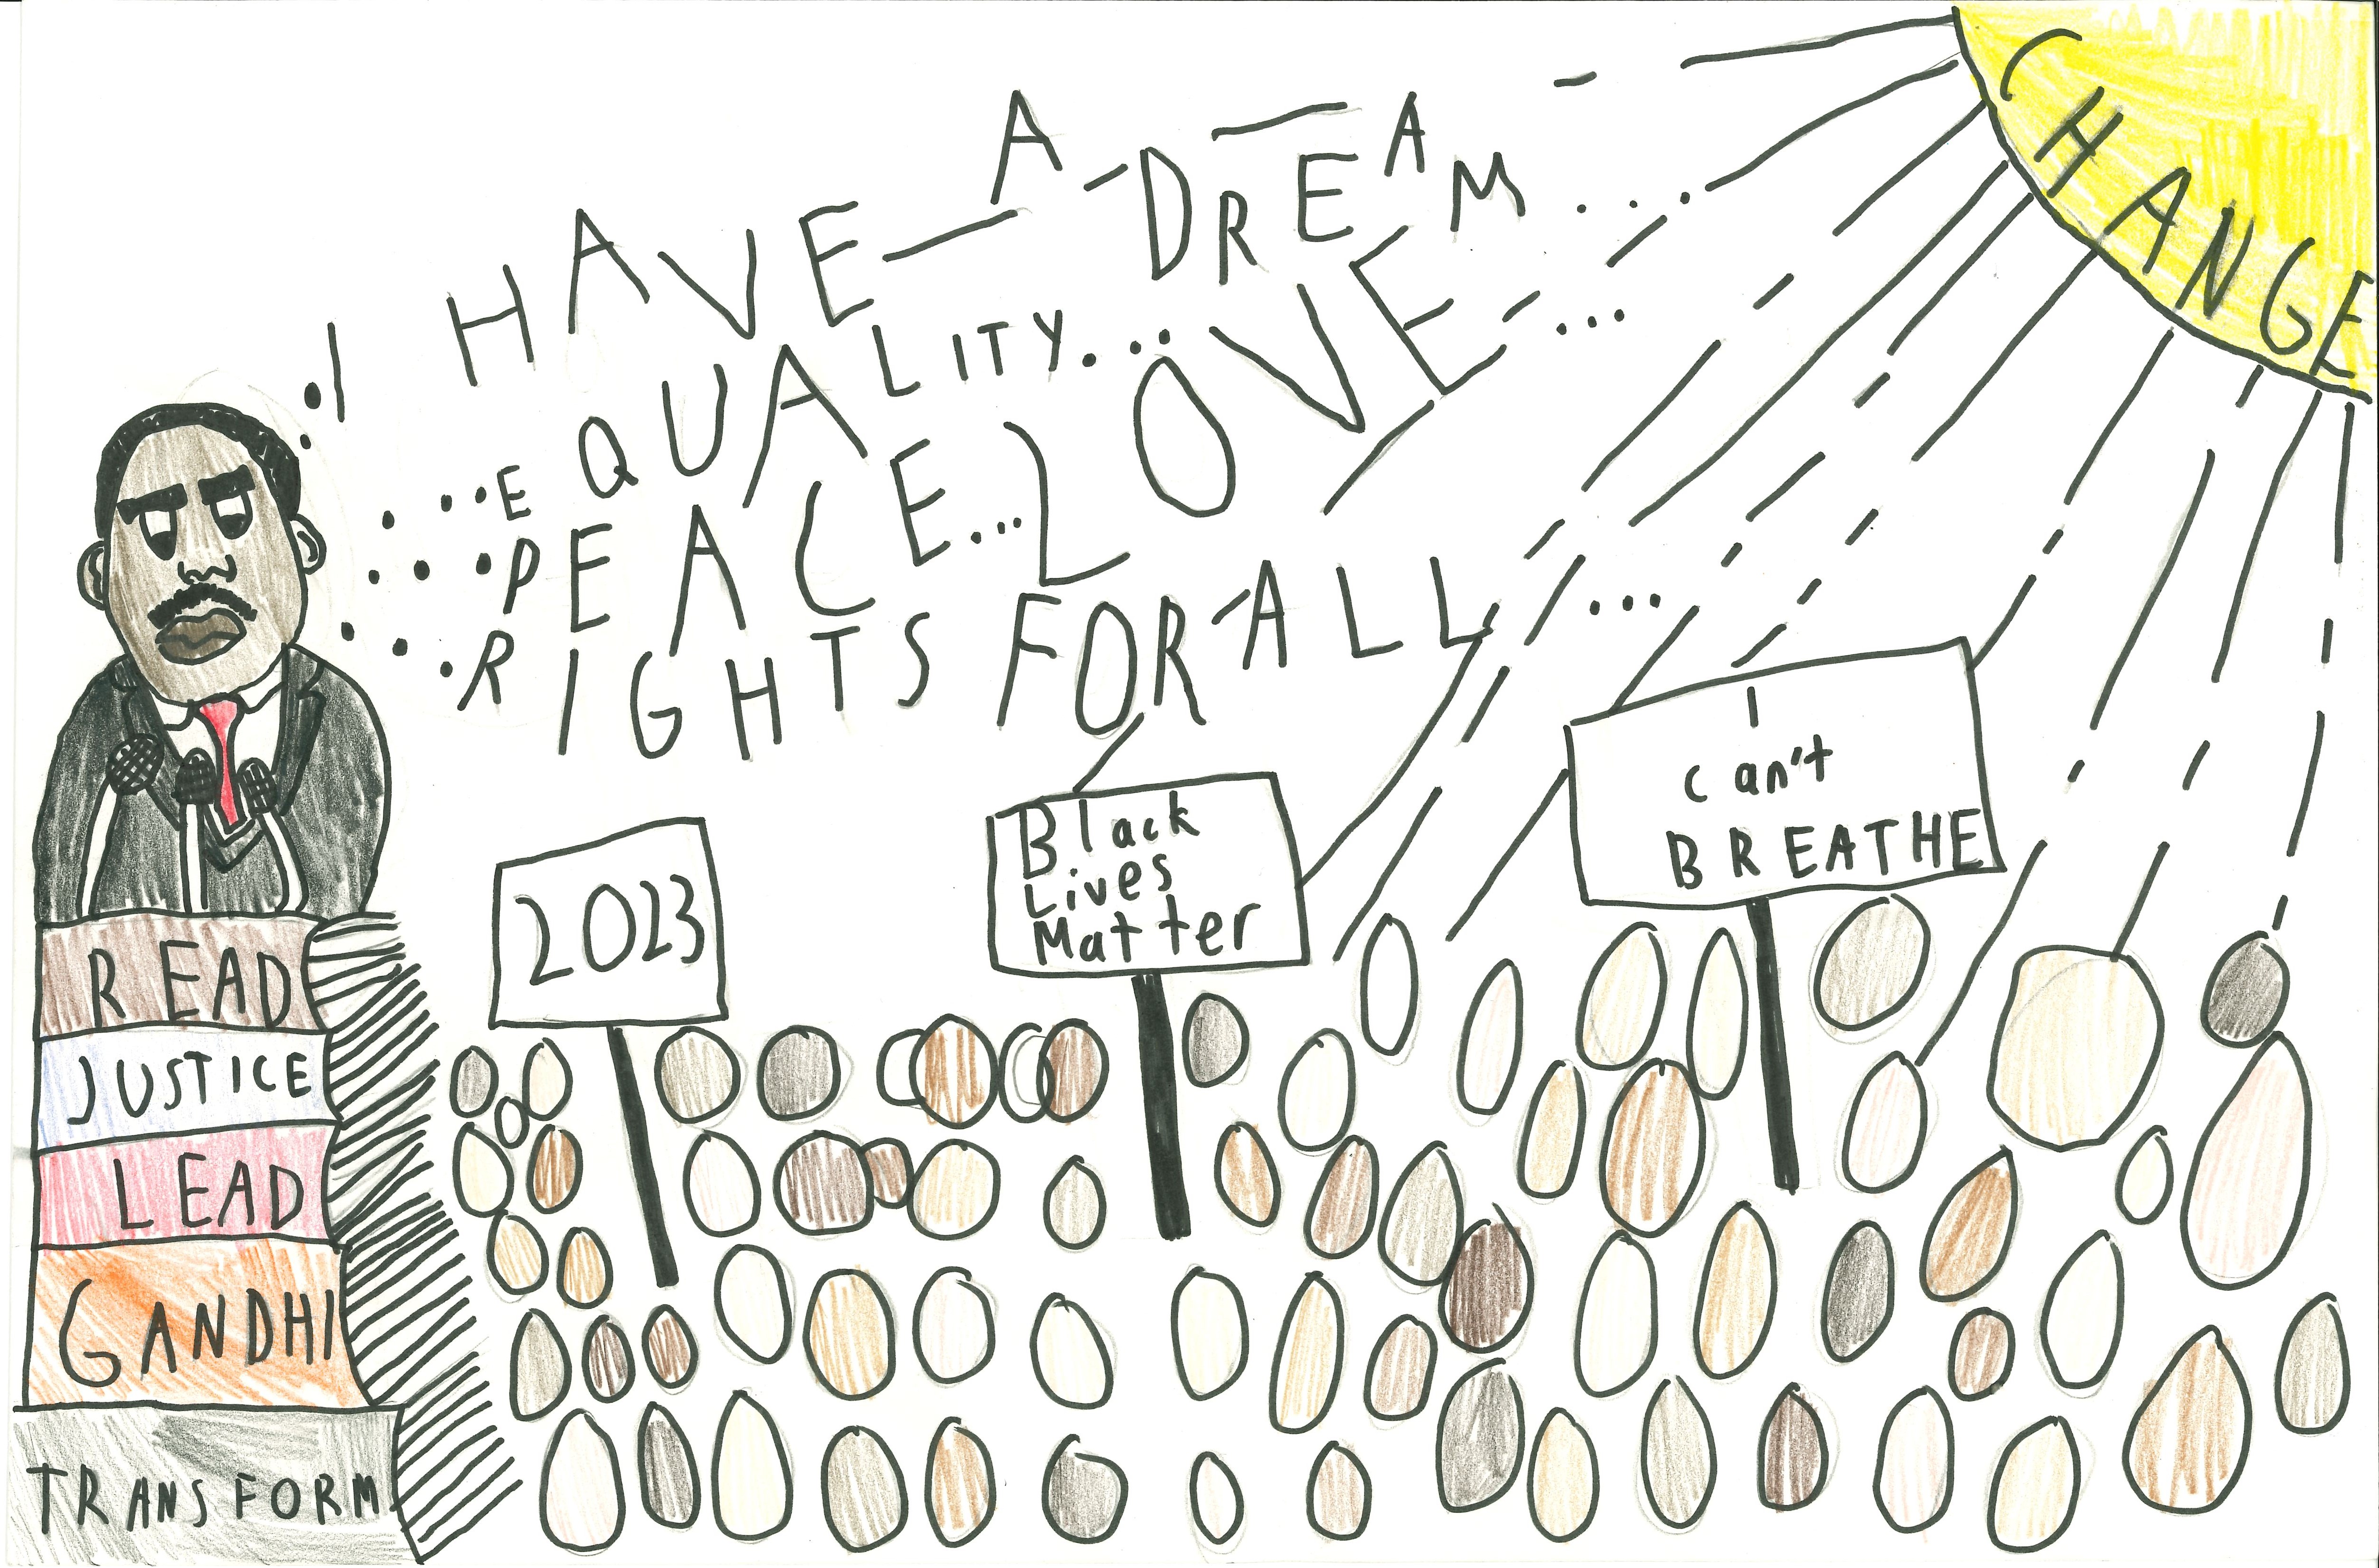 CHANGE
I HAVE A DREAM....
...EQUALITY...
...PEACE...LOVE...
...RIGHTS FOR ALL...
2023
Black
Lives
Matter
I
can't
BREATHE
READ
JUSTICE
LEAD
GANDHI
TRANSFORM